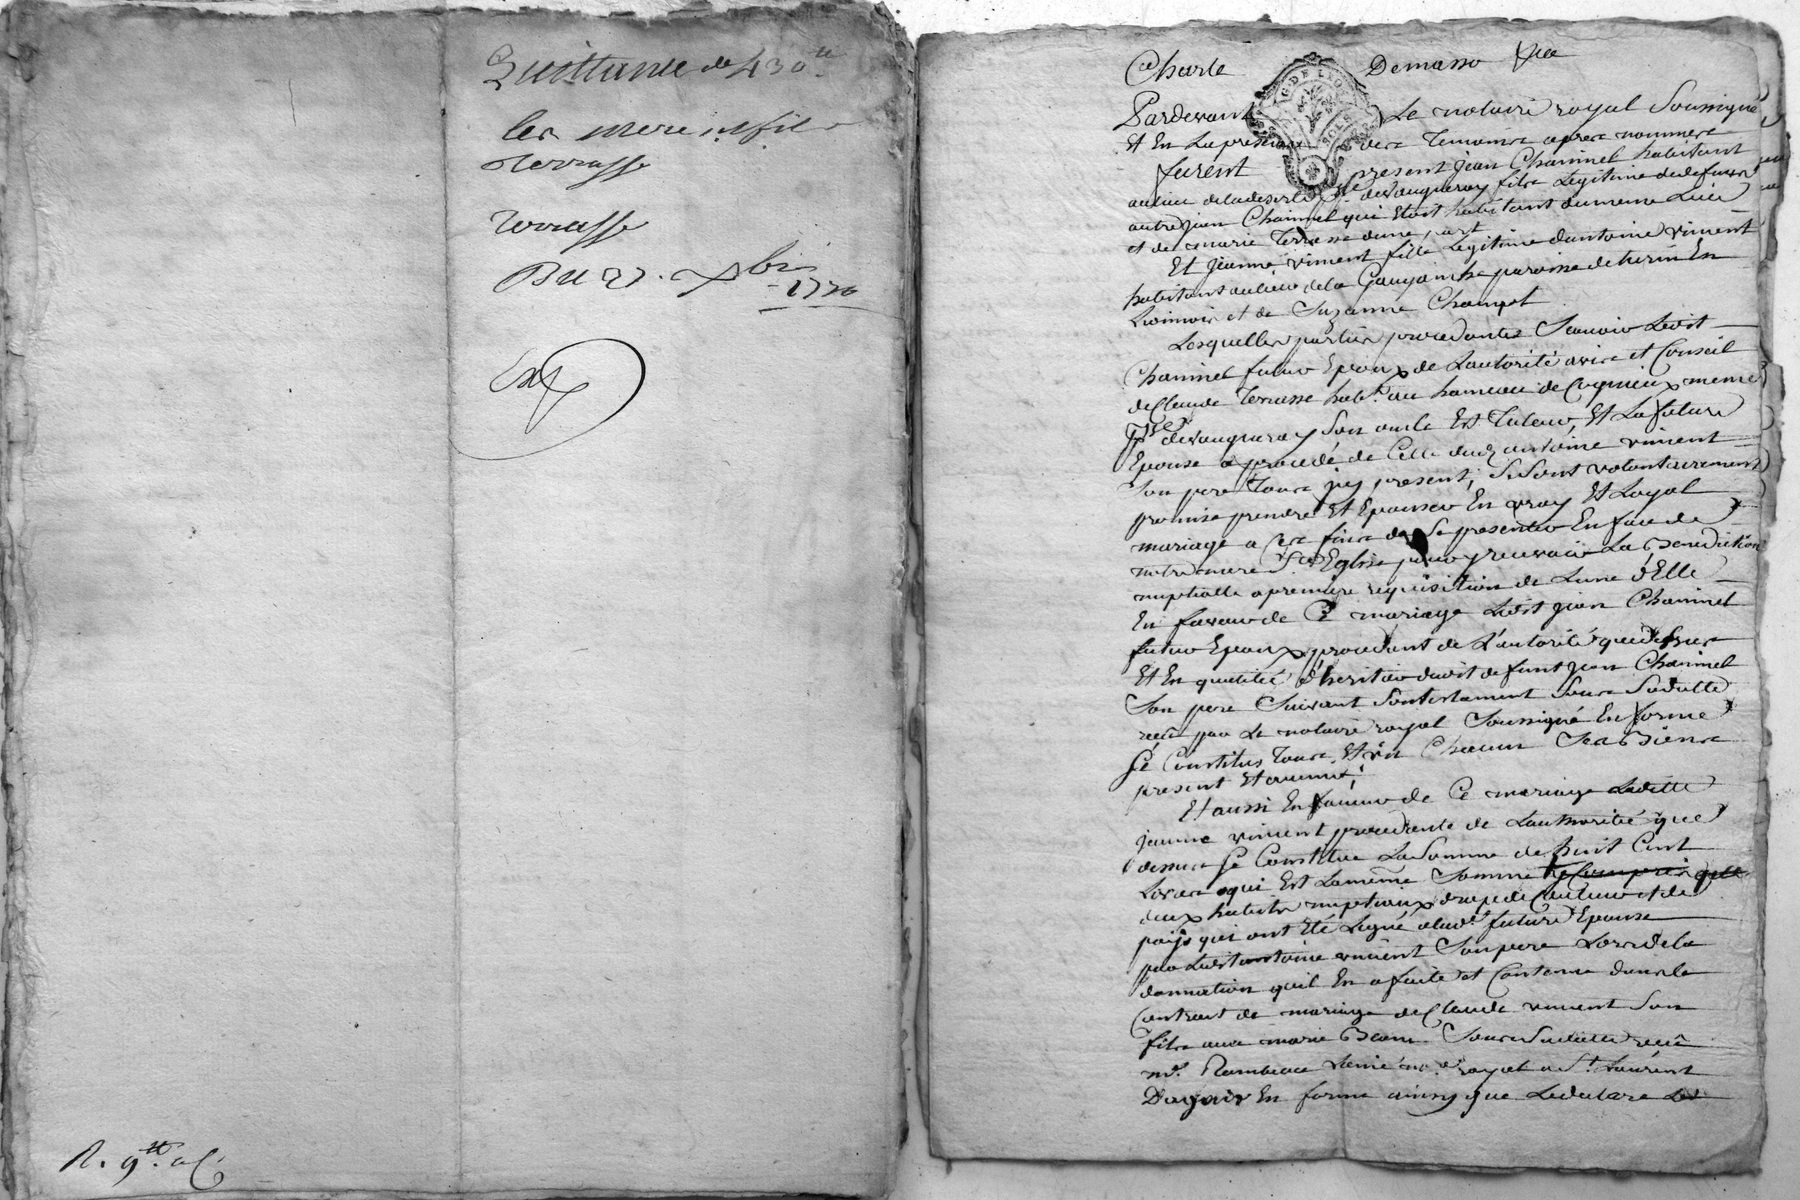 Quittance de 430ᵗᵗ
les mere et fils
terrasse
terrasse
Du 22. Xbre
1776
R. 9ᵗᵗ
Charle Demasso
G. DE LYO
SOLS
Pardevant Le notaire royal Soussigné
Et En La presence des Temoins apres nommes
furent present jean Chaninel habitant
au lieu de la deserte psse de Vaugneray fils Legitime de defunt
autre jean Chaninel qui Etoit habitant du meme Lieu
et de marie Terrasse dune part
Et jeanne viment fille Legitime dantoine viment
habitant au lieu de la paroisse de turin En
Lionnois et de Suzanne
Lesquelles parties procedantes Scavoir Ledit
Chaninel futur Epoux de Lautorité avis et Conseil
de Claude Terrasse habt. au hameau de meme
psse de vaugneray Son oncle Et Tuteur, Et La future
Epouse a procedé de Celle dudt antoine viment
Son pere Tous jcy present, Se Sont volontairement
promis prendre Et Epouser En vray Et Loyal
mariage a Ces fins de Se presenter En face de
notre mere Ste Eglise pour y recevoir La Benediction
nuptialle a premiere requisition de Lune d'Elle
En faveur de Ce mariage Ledit jean Chaninel
futur Epoux procedant de L'autorité que dessus
Et En qualité d'heritier dudit defunt jean Chaninel
Son pere Suivant Son testament Sous Sa datte
recu par Le notaire royal Soussigné En forme
Se Constitue Tous Et Un Chacun Ses Biens
present Et avenir;
Et aussi En faveur de Ce mariage Ladite
jeanne viment procedante de Lauthorité que
dessus Se Constitue La Somme de huit Cent
Livres qui Est La meme Somme y Compris que
deux habits nuptiaux drap de Couleur et de
pays qui ont Eté Legué a lad. future Epouse
par Ledit antoine viment Son pere Lors de la
donnation quil En a faite et Contenue dans le
Contrat de mariage de Claude viment Son
fils avec marie Sous Sa datte recu
me. Lainé no.re royal a St. Laurent
Dagnir En forme ainsy que Ledeclare Led